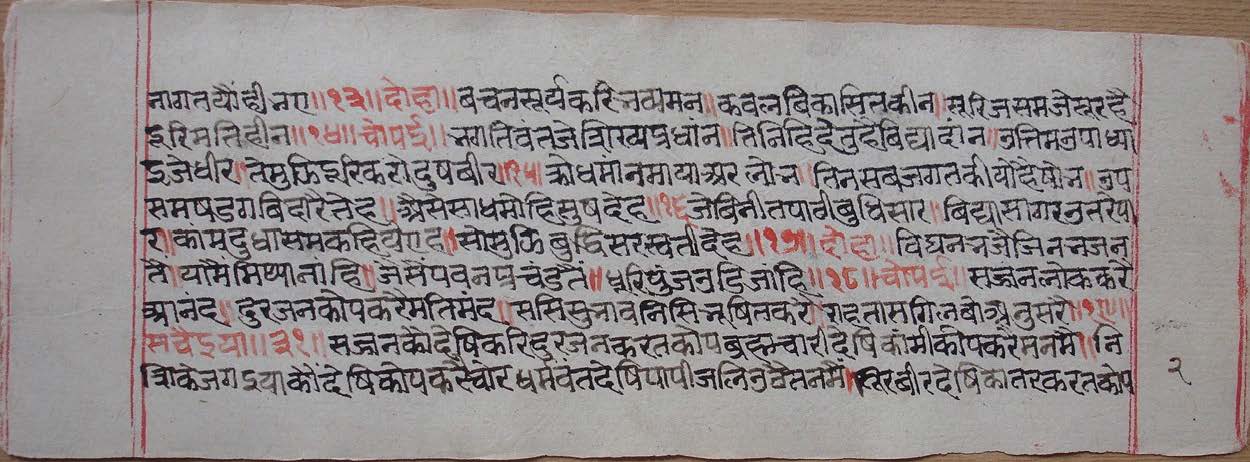 नागतयौंहीनए॥१३॥दोहा॥बचनसूर्यकरिनव्यमन॥कवलबिकासितकीन॥सूरिजसमजेसूरहै
हरिमतिहीन॥१४॥चोपई॥नगतिवंतजेशिख्यप्रधांन॥तिनिहिदैनुहेविद्यादान॥उत्तिमउपाध्या
इजेधीर॥तेमुझिहरिकरोदुषबीर॥१५॥क्रोधमांनमायाअरलोभ॥तिनसबजगतकीयोहैषोन॥उप
समषडगबिदारैतेह॥अैसेसाधमोहिसुषदेह॥१६॥जेबिनीतपावीबुधिसार॥बिद्यासागरउतरेपा
र॥कामदुधासमकहियेएह॥सोमुझिबुद्धिसरस्वतीदेह॥१७॥दोहा॥विघनजजैजिननजन
तै॥यामैमिथ्यानांहि॥जैसेंपवनप्रचंडतें॥धूरिपुंजउडिजांहि॥१८॥चोपई॥सज्जनलोककरे
आनंद॥दुरजनकोपकरैमतिमंद॥ससिसुभावनिसिभूषितकरै॥राहतासगिलबोअनुसरै॥१९॥
सवैइया॥३१॥सज्जनकौदेषिकरिदुरजनकरतकोपब्रह्मचारीदेषिकांमीकोपकरैमनमै॥नि
शिकेजगइयाकौंदेषिकोपकरैचोरधर्मवंतदेषिपापीजलिउवैतनमैं॥सूरबीरदेषिकातरकरतकोप
२